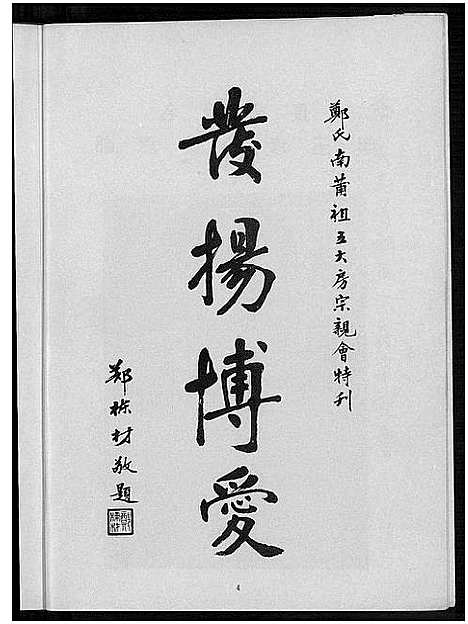 鄭氏南莆祖五大房宗親會特刊
發揚博愛
鄭棟材敬題
4